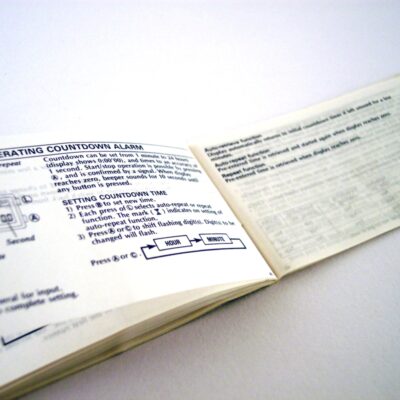 ERATING COUNTDOWN ALARM
epeat
Countdown can be set from 1 minute to 24 hours
(display shows 0:00'00), and times to an accuracy of
1 second. Start/stop operation is possible by pressing
Ⓑ, and is confirmed by a signal. When display
reaches zero, beeper sounds for 10 seconds until
any button is pressed.
SETTING COUNTDOWN TIME
1) Press Ⓑ to set new time.
2) Each press of Ⓒ selects auto-repeat or repeat
function. The mark ( ) indicates on setting of
auto-repeat function.
3) Press Ⓐ or Ⓒ to shift flashing digit(s). Digit(s) to be
changed will flash.
Press Ⓑ or Ⓒ.
HOUR
MINUTE
L
A
Second
eral for input.
complete setting.
Auto-retrieve function
Display automatically returns to initial countdown time if left unused for a few
minutes.
Auto-repeat function
Pre-entered time is retrieved and started again when display reaches zero.
Repeat function
Pre-entered time is retrieved when display reaches zero.